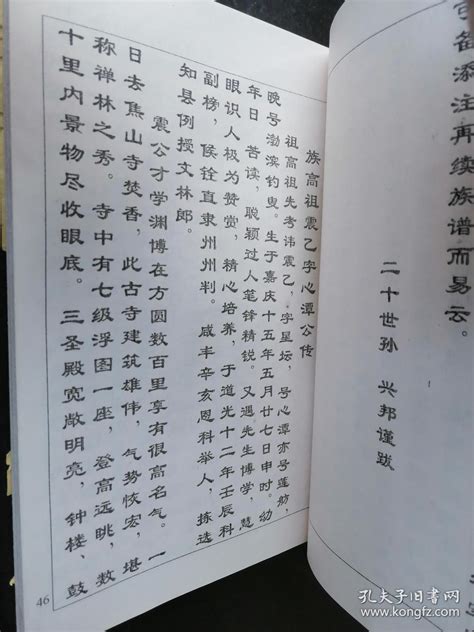 弯备添注再续族谱而易云。
二十世孙 兴邦谨跋
族高祖震乙字心潭公传
祖高祖先考讳震乙，字星坛，号心潭亦号莲舫，
晚号渤滨钓叟。生于嘉庆十五年五月廿七日申时。幼
年日苦读，聪颖过人笔锋精锐。又遇先生博学，慧
眼识人极为赞赏，精心培养，于道光十二年壬辰科
副榜，候铨直隶州州判。咸丰辛亥恩科举人，拣选
知县例授文林郎。
震公才学渊博在方圆数百里享有很高名气。一
日去焦山寺焚香，此古寺建筑雄伟，气势恢宏，堪
称禅林之秀。寺中有七级浮图一座，登高远眺，数
十里内景物尽收眼底。三圣殿宽敞明亮，钟楼、鼓
46
孔夫子旧书网